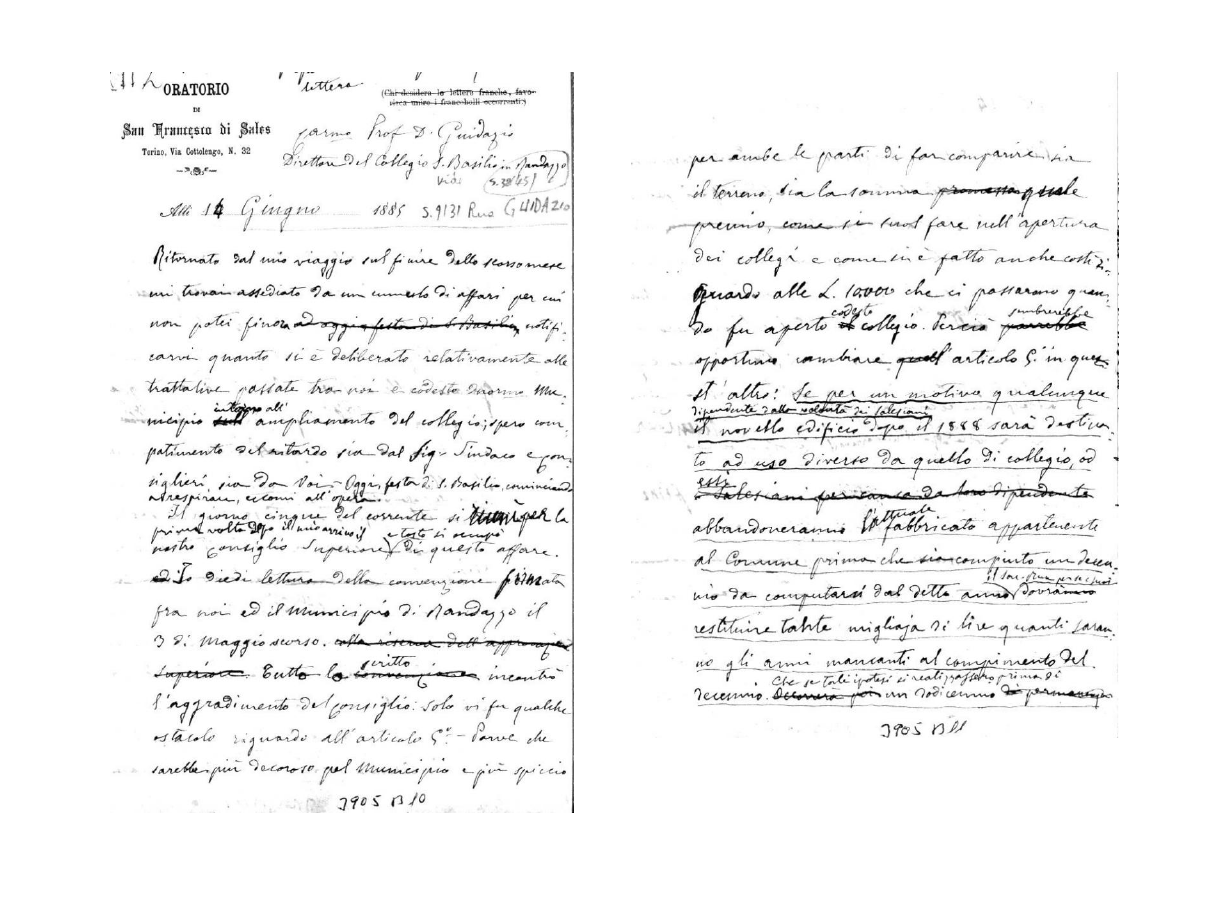 ORATORIO
DI
San Francesco di Sales
Torino, Via Cottolengo, N. 32
lettera
(Chi desidera le lettere franche, favo-
risca unire i francobolli occorrenti)
Carmo Prof D. Guidazio
Direttore del Collegio S. Basilio in Randazzo
Alli 14 Giugno 1885 S.9131 Rua GUIDAZIO
Ritornato dal mio viaggio sul finire dello scorso mese
mi trovai assediato da un cumulo di affari per cui
non potei finora ad oggi festa di S Basilio notifi-
carvi quanto si è deliberato relativamente alle
trattative passate tra noi e codesto onorevole Mu-
intorno all'
nicipio sull ampliamento del collegio; spero com-
patimento del ritardo sia dal Sig. Sindaco e con-
siglieri, sia da Voi - Oggi, festa di S. Basilio, cominciando
a respirare, eccomi all'opera.
Il giorno cinque del corrente si per la
prima volta dopo il mio arrivo, e tosto si occupò
nostro Consiglio Superiore di questo affare.
ed Io diedi lettura della convenzione firmata
fra noi ed il Municipio di Randazzo il
3 di Maggio scorso. colla riserva dell approvazione
scritto
Superiore. Tutto lo convenzione incontrò
l'aggradimento del Consiglio. Solo vi fu qualche
ostacolo riguardo all'articolo 5º - Parve che
sarebbe più decoroso pel Municipio e più spiccio
3905 B10
per ambe le parti di far comparire sia
il terreno, sia la somma promessa quale
premio, come si suol fare nell'apertura
dei collegi e come si è fatto anche costì ri-
guardo alle L. 10000 che ci passarono quan-
codesto sembrerebbe
do fu aperto il collegio. Perciò parrebbe
opportuno cambiare quell articolo 5º in que-
st' altro: Se per un motivo qualunque
dipendente dalla volontà dei Salesiani
il novello edificio dopo il 1888 sarà destina-
to ad uso diverso da quello di collegio, od
essi
i Salesiani per causa da loro dipendente
abbandoneranno l'attuale fabbricato appartenente
al Comune prima che sia compiuto un decen-
nio da computarsi dal detto anno dovranno
restituire tante migliaja di lire quanti saran-
no gli anni mancanti al compimento del
Che se tali ipotesi si realizzassero prima di
decennio. Decorrerà poi un dodicennio di permanenza
3905 B11